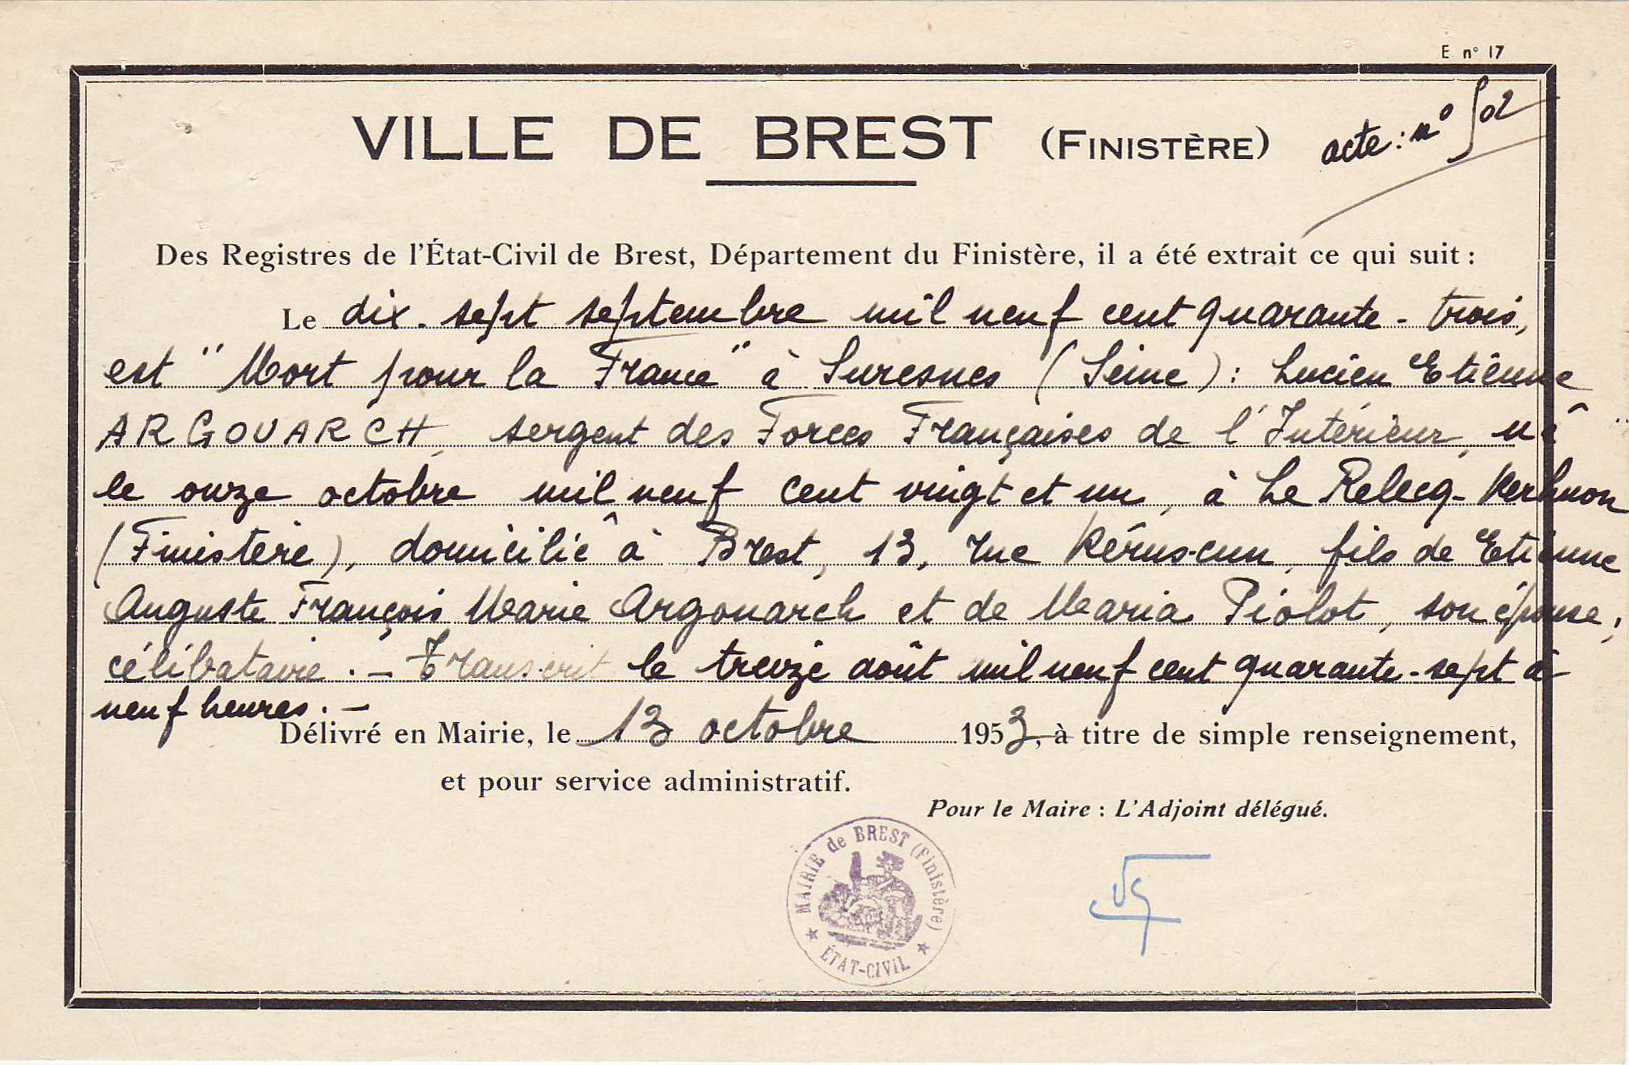 E n° 17
VILLE DE BREST (FINISTÈRE)
acte : n° 502
Des Registres de l'État-Civil de Brest, Département du Finistère, il a été extrait ce qui suit :
Le dix-sept septembre mil neuf cent quarante-trois,
est "Mort pour la France" à Suresnes (Seine) : Lucien Etienne
ARGOUARCH, sergent des Forces Françaises de l'Intérieur, né
le onze octobre mil neuf cent vingt et un, à Le Relecq-Kerhuon
(Finistère), domicilié à Brest, 13, rue Kéruscun, fils de Etienne
Auguste François Marie Argouarch et de Maria Piolot, son épouse,
célibataire. - Transcrit le treize août mil neuf cent quarante-sept à
neuf heures. -
Délivré en Mairie, le 13 octobre 1953, à titre de simple renseignement,
et pour service administratif.
Pour le Maire : L'Adjoint délégué.
MAIRIE de BREST (Finistère)
★ ÉTAT-CIVIL ★